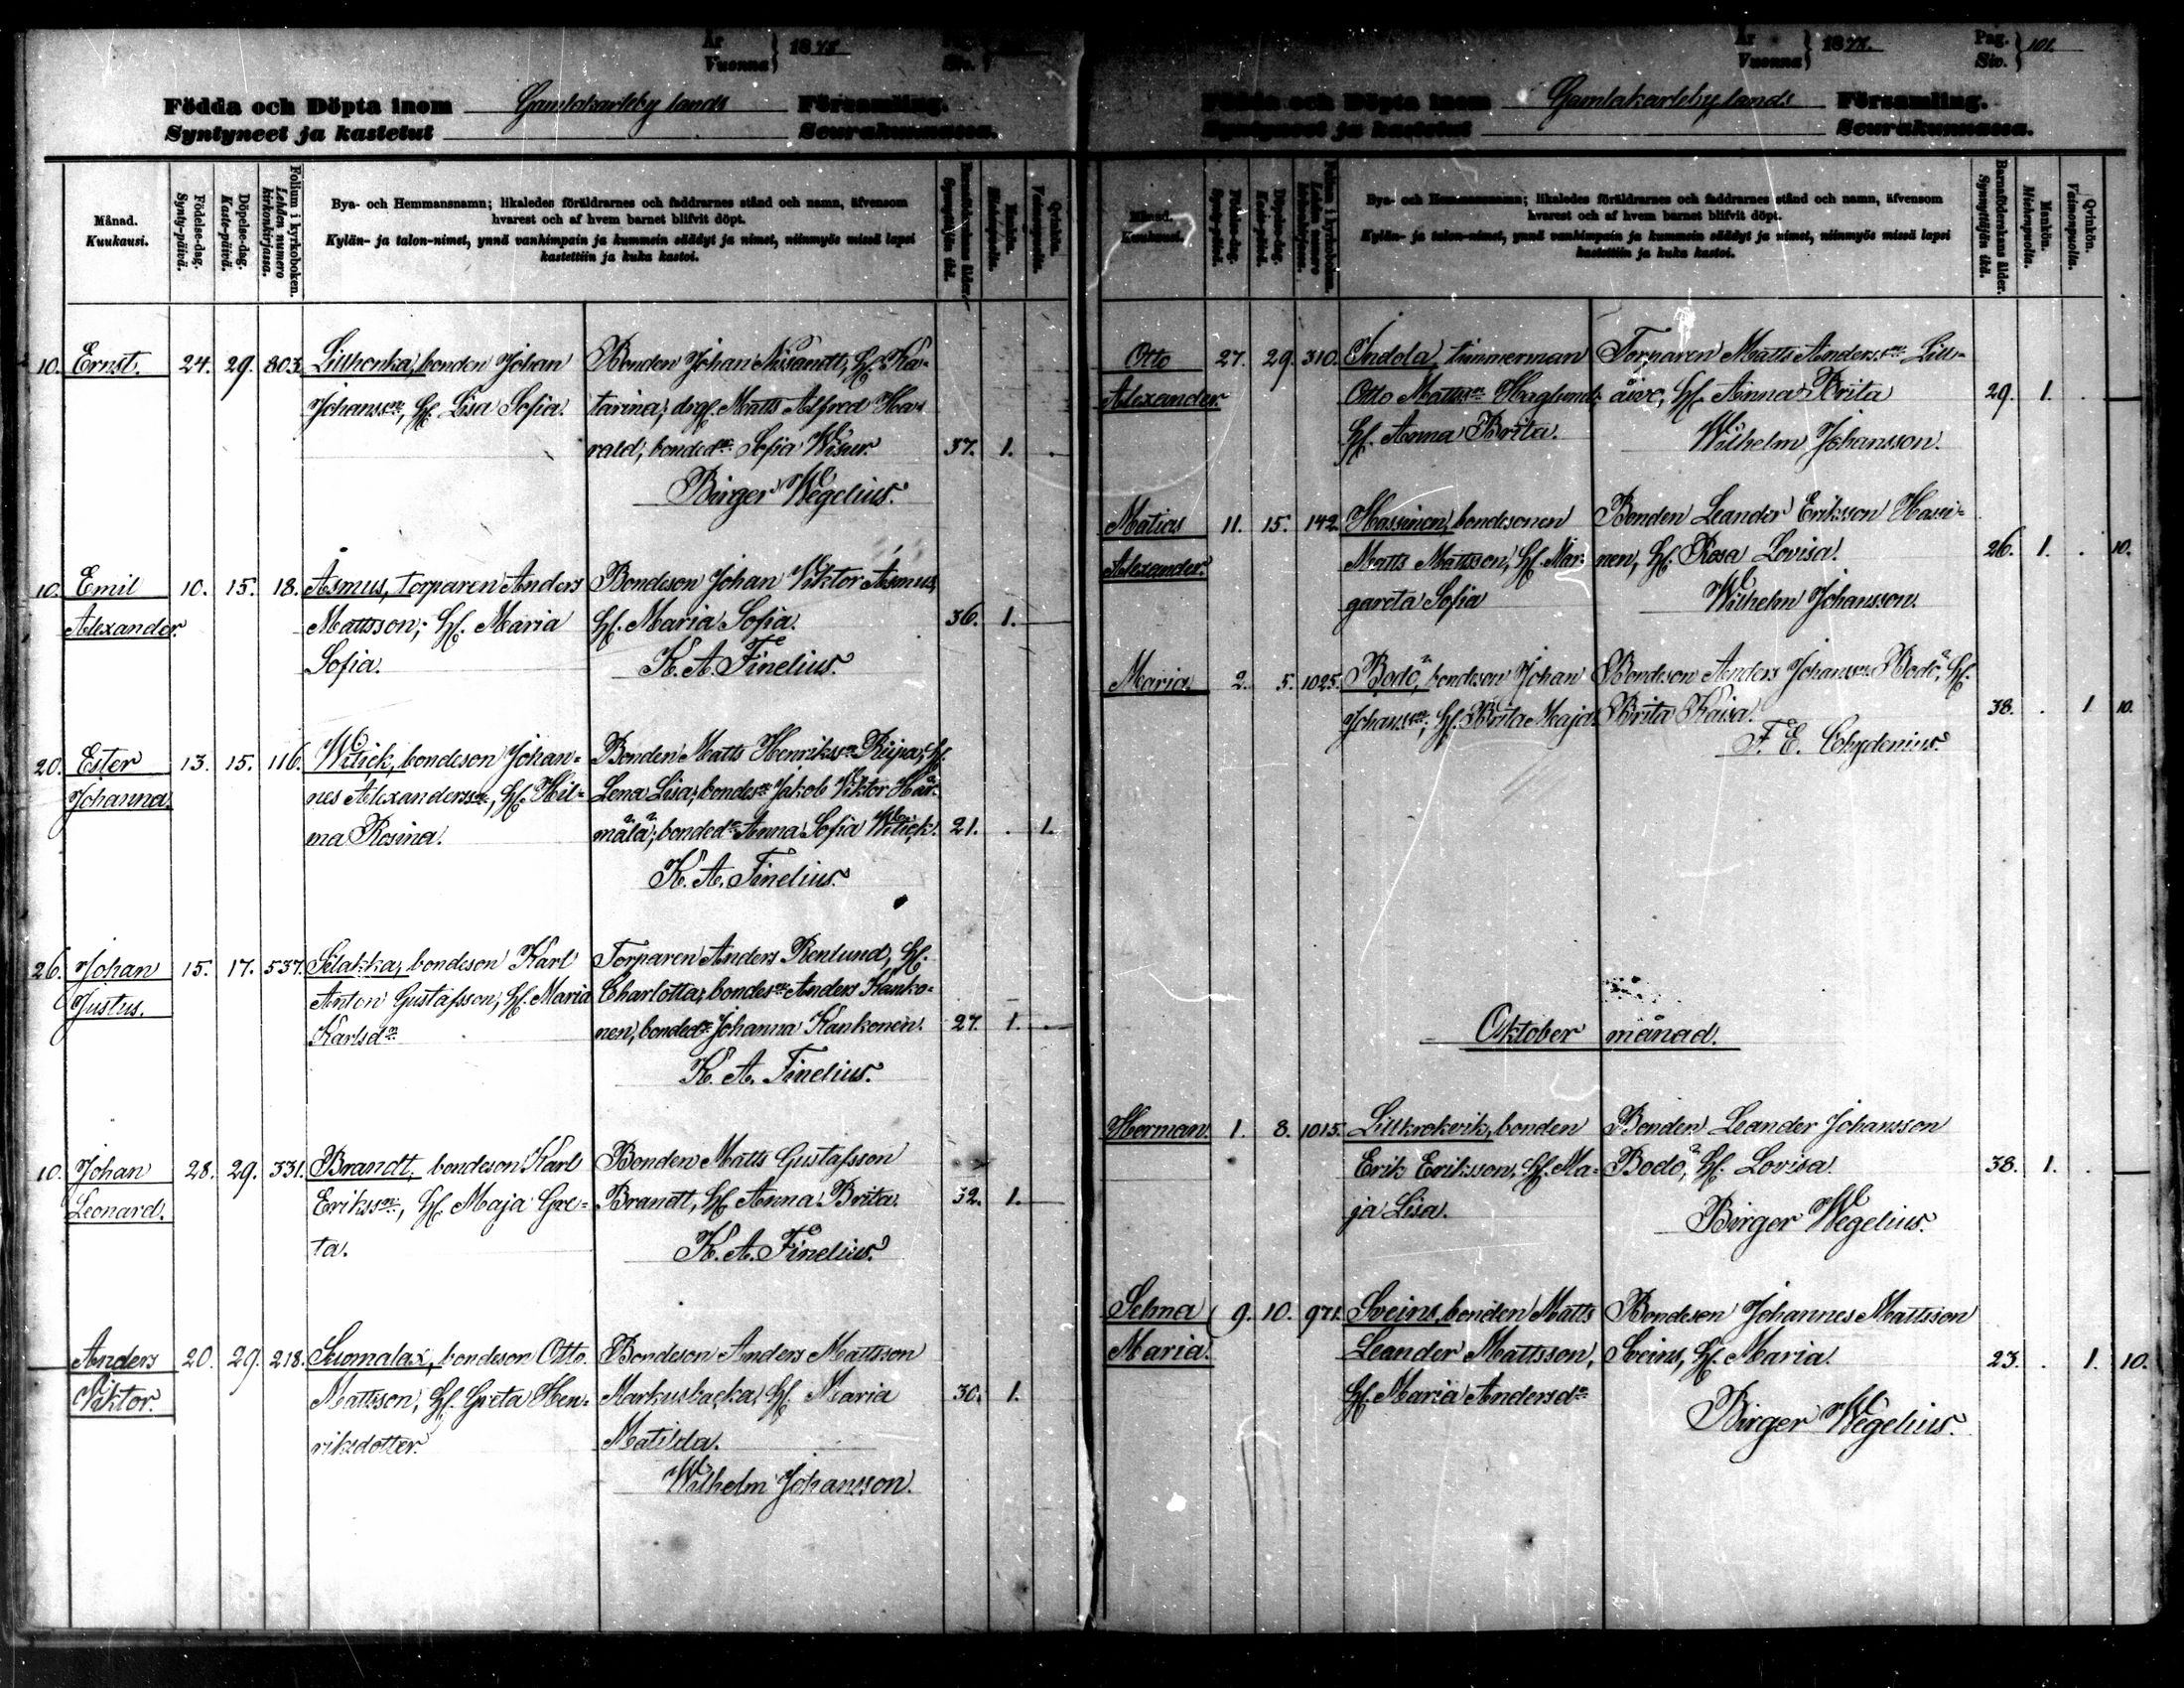 År
Vuonna } 1878
Födda och Döpta inom Gamlakarleby lands Församling.
Syntyneet ja kastetut Seurakunnassa.
Månad.
Kuukausi.
Födelse-dag.
Synty-päivä.
Döpelse-dag.
Kaste-päivä.
Folium i kyrkoboken.
Lehden numero kirkonkirjassa.
Bya- och Hemmansnamn; likaledes föräldrarnes och faddrarnes stånd och namn, äfvensom
hvarest och af hvem barnet blifvit döpt.
Kylän- ja talon-nimet, ynnä vanhimpain ja kummein säädyt ja nimet, niinmyös missä lapsi
kastettiin ja kuka kastoi.
Barnaföderskans ålder.
Synnyttäjän ikä.
Mankön.
Miehenpuolia.
Qvinkön.
Vaimonpuolia.
10. Ernst. 24. 29. 803. Lillhonka, bonden Johan Bonden Johan Hf. Ka-
Johansson, Hf. Lisa Sofia. tarina; drgl. Matts Alfred Ha-
rald; bonded:r Sofia Wisur. 37. 1.
Birger Wegelius.
10. Emil 10. 15. 18. Åsmus, torparen Anders Bondeson Johan Viktor Åsmus,
Alexander. Mattsson; Hf. Maria Hf. Maria Sofia. 36. 1.
Sofia. K. A. Finelius.
20. Ester 13. 15. 116. Witick, bondeson Johan- Bonden Matts Henrikss:n Riipa; Hf.
Johanna. nes Alexanderss:n, Hf. Hil- Lena Lisa; bondes:n Jakob Viktor Här-
ma Rosina. mälä; bonded:r Anna Sofia Witick. 21. . 1.
K. A. Finelius.
26. Johan 15. 17. 537. Silakka, bondeson Karl Torparen Anders Renlund, Hf.
Justus. Anton Gustafsson, Hf. Maria Charlotta; bondes:n Anders Kanko-
Karlsd:r nen, bonded:r Johanna Kankonen. 27. 1.
K. A. Finelius.
10. Johan 28. 29. 331. Brandt, bondeson Karl Bonden Matts Gustafsson
Leonard. Erikss:n, Hf. Maja Gre- Brandt, Hf. Anna Brita. 32. 1.
ta. K. A. Finelius.
Anders 20. 29. 218. Suomalax, bondeson Otto Bondeson Anders Mattsson
Viktor. Mattsson, Hf. Greta Hen- Markusbacka, Hf. Maria 30. 1.
riksdotter. Matilda.
Wilhelm Johansson.
År
Vuonna } 1878.
Pag.
Siv. } 101.
Födda och Döpta inom Gamlakarleby lands Församling.
Syntyneet ja kastetut Seurakunnassa.
Månad.
Kuukausi.
Födelse-dag.
Synty-päivä.
Döpelse-dag.
Kaste-päivä.
Folium i kyrkoboken.
Lehden numero kirkonkirjassa.
Bya- och Hemmansnamn; likaledes föräldrarnes och faddrarnes stånd och namn, äfvensom
hvarest och af hvem barnet blifvit döpt.
Kylän- ja talon-nimet, ynnä vanhimpain ja kummein säädyt ja nimet, niinmyös missä lapsi
kastettiin ja kuka kastoi.
Barnaföderskans ålder.
Synnyttäjän ikä.
Mankön.
Miehenpuolia.
Qvinkön.
Vaimonpuolia.
Otto 27. 29. 310. Indola, timmerman Torparen Matts Anderss:n Lill-
Alexander. Otto Mattss:n Haglund; Hf. Anna Brita 29. 1.
Hf. Anna Brita. Wilhelm Johansson.
Matias 11. 15. 142. Hassinen, bondesonen Bonden Leander Eriksson Hassi-
Alexander. Matts Mattsson, Hf. Mar- nen, Hf. Rosa Lovisa. 26. 1. . 10.
gareta Sofia Wilhelm Johansson.
Maria. 2. 5. 1025. Bodö, bondeson Johan Bondeson Anders Johanss:n Bodö, Hf.
Johanss:n, Hf. Brita Maja. Brita Kaisa. 38. . 1 10.
F. E. Chydenius.
Oktober månad.
Herman. 1. 3. 1015. Lillkrokvik, bonden Bonden Leander Johansson
Erik Eriksson, Hf. Ma- Bodö, Hf. Lovisa. 38. 1. .
ja Lisa. Birger Wegelius.
Selma 9. 10. 971. Sveins, bonden Matts Bondeson Johannes Mattsson
Maria. Leander Mattsson, Sveins, Hf. Maria. 23. . 1. 10.
Hf. Maria Andersd:r Birger Wegelius.